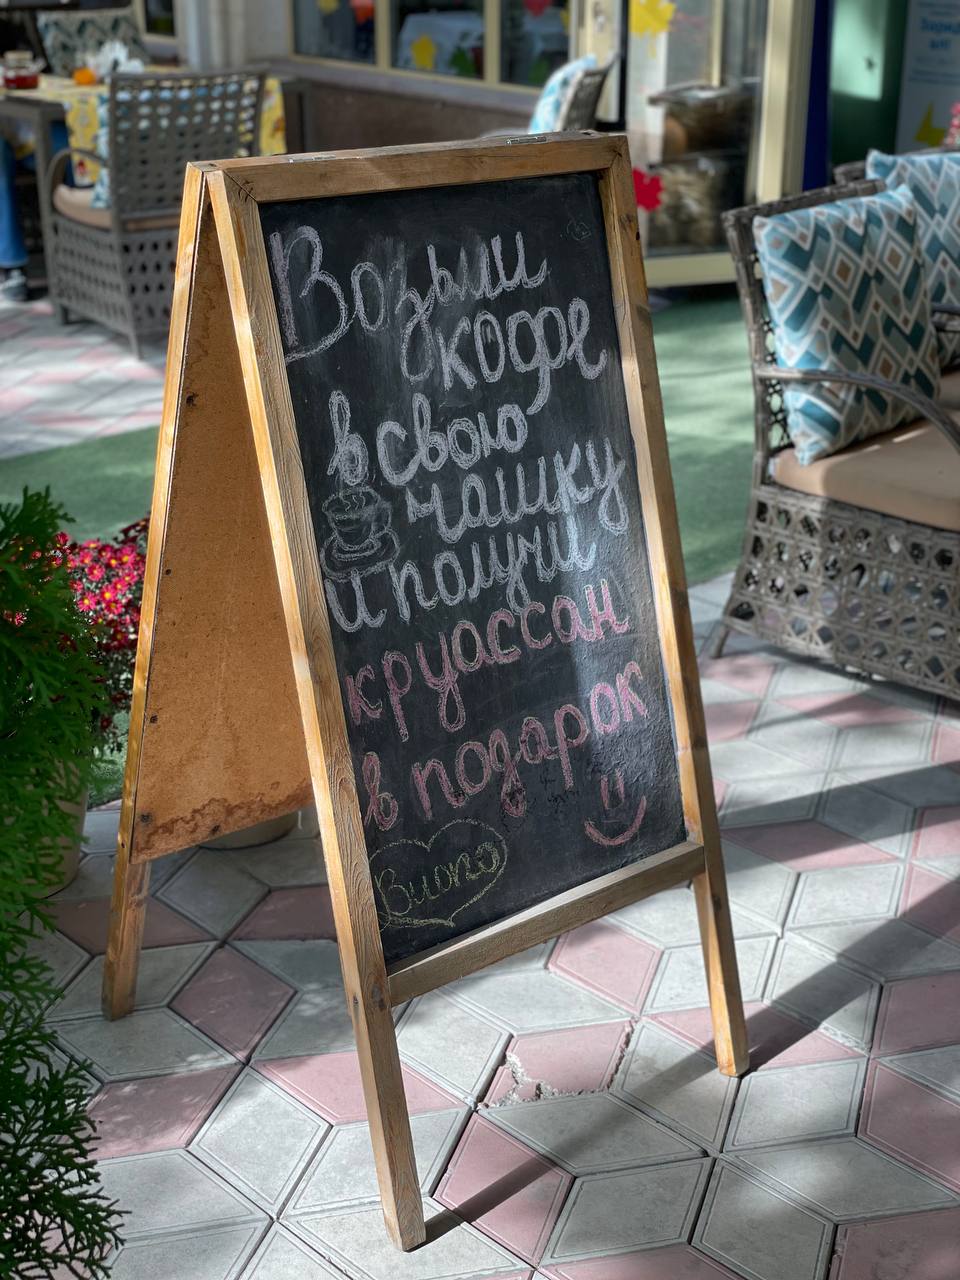 Возьми
кофе
в свою
чашку
и получи
круассан
в подарок
Buono